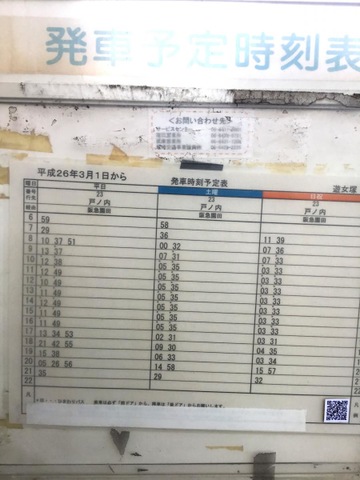 発車予定時刻表
<お問い合わせ先>
サービスセンター
平成26年3月1日から 発車時刻予定表 遊女塚
曜日 平日 土曜 日祝
番号 23 23 23
行先 戸ノ内 戸ノ内 戸ノ内
経由 阪急園田 阪急園田 阪急園田
6 59
7 29 58
8 10 37 51 36 11 39
9 13 37 00 32 07 36
10 12 38 07 31 03 33
11 12 49 05 35 03 33
12 10 49 05 35 03 33
13 11 49 05 35 03 33
14 11 49 05 35 03 33
15 11 49 05 35 03 33
16 11 49 05 35 03 33
17 13 34 53 02 31 03 31
18 21 42 55 09 30 04 35
19 15 38 06 33 04 34
20 05 26 56 14 58 15 57
21 35 29 32
22
凡例